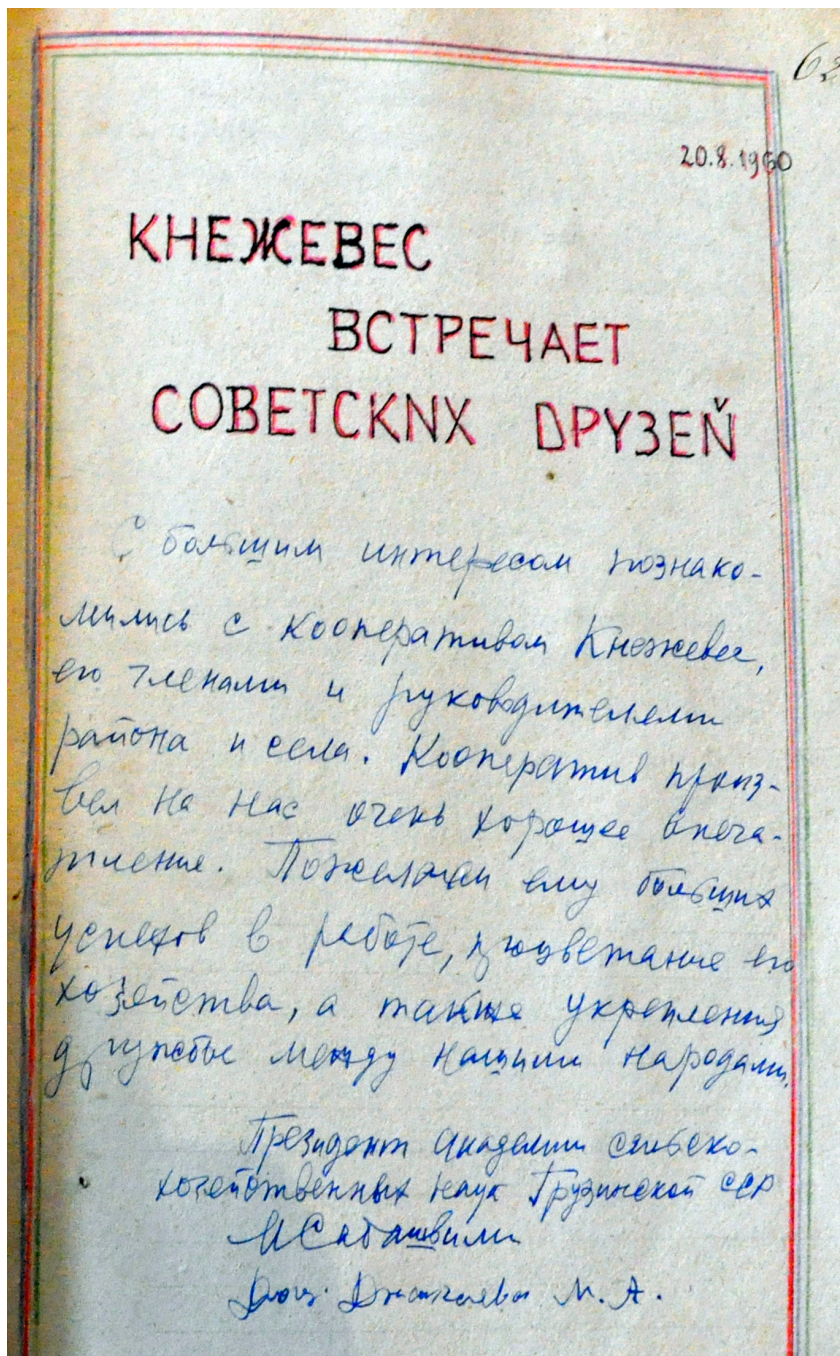 20.8.1960
КНЕЖЕВЕС
ВСТРЕЧАЕТ
СОВЕТСКИХ ДРУЗЕЙ
С большим интересом познако-
мились с кооперативом Кнежевес,
его членами и руководителями
района и села. Кооператив произ-
вел на нас очень хорошее впеча-
тление. Пожелаем ему больших
успехов в работе, процветание его
хозяйства, а также укрепления
дружбы между нашими народами.
Президент Академии сельско-
хозяйственных наук Грузинской ССР
М Сабашвили
М. А.